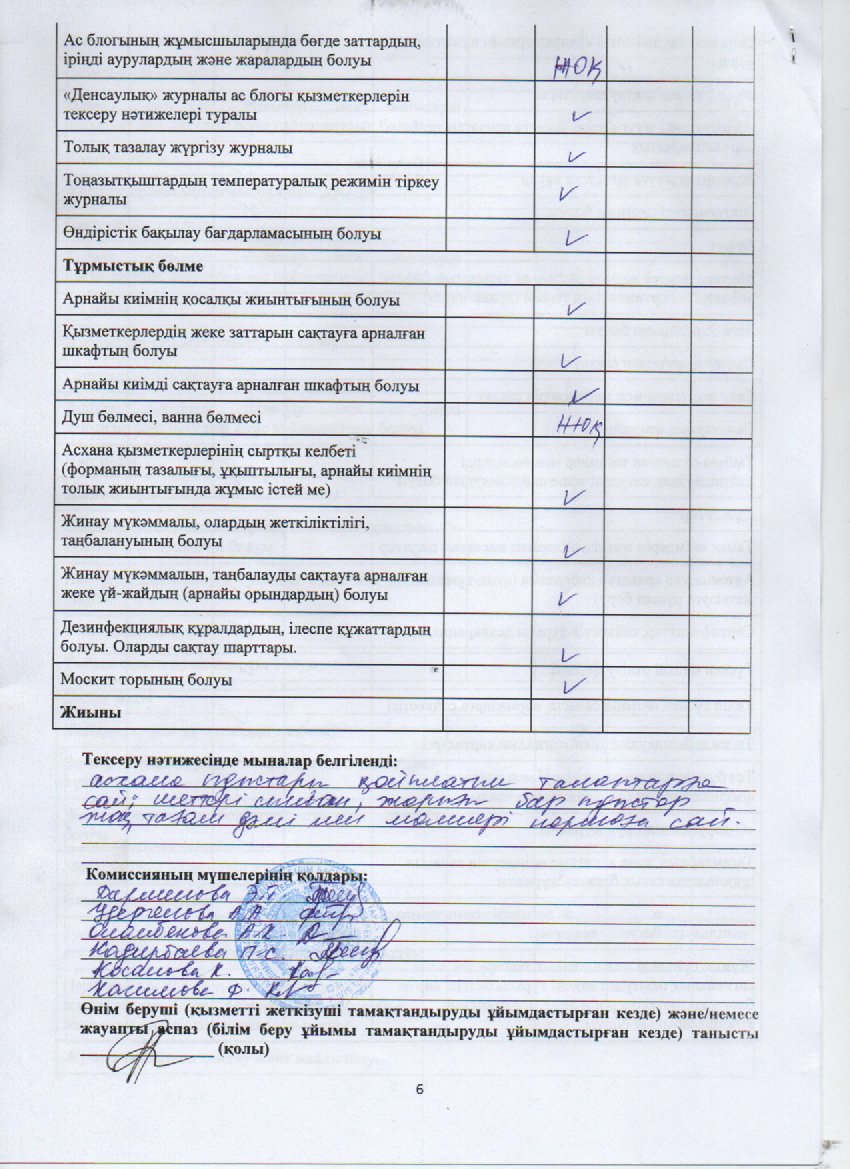 Ас блогының жұмысшыларында бөгде заттардың,
іріңді аурулардың және жаралардың болуы
жоқ
«Денсаулық» журналы ас блогы қызметкерлерін
тексеру нәтижелері туралы ✓
Толық тазалау жүргізу журналы ✓
Тоңазытқыштардың температуралық режимін тіркеу
журналы ✓
Өндірістік бақылау бағдарламасының болуы ✓
Тұрмыстық бөлме
Арнайы киімнің қосалқы жиынтығының болуы ✓
Қызметкерлердің жеке заттарын сақтауға арналған
шкафтың болуы ✓
Арнайы киімді сақтауға арналған шкафтың болуы ✓
Душ бөлмесі, ванна бөлмесі жоқ
Асхана қызметкерлерінің сыртқы келбеті
(форманың тазалығы, ұқыптылығы, арнайы киімнің
толық жиынтығында жұмыс істей ме) ✓
Жинау мүкәммалы, олардың жеткіліктілігі,
таңбалануының болуы ✓
Жинау мүкәммалын, таңбалауды сақтауға арналған
жеке үй-жайдың (арнайы орындардың) болуы ✓
Дезинфекциялық құралдардың, ілеспе құжаттардың
болуы. Оларды сақтау шарттары. ✓
Москит торының болуы ✓
Жиыны
Тексеру нәтижесінде мыналар белгіленді:
асхана ыдыстары қойылатын талаптарға
сай; шеттері, бар ыдыстар
жоқ, тағам дәмі мен мөлшері нормаға сай.
Комиссияның мүшелерінің қолдары:
А.А
А.К
Кадирбаева Г.С.
Косанова К.
Касимова Ф.
Өнім беруші (қызметті жеткізуші тамақтандыруды ұйымдастырған кезде) және/немесе
жауапты аспаз (білім беру ұйымы тамақтандыруды ұйымдастырған кезде) танысты
(қолы)
6